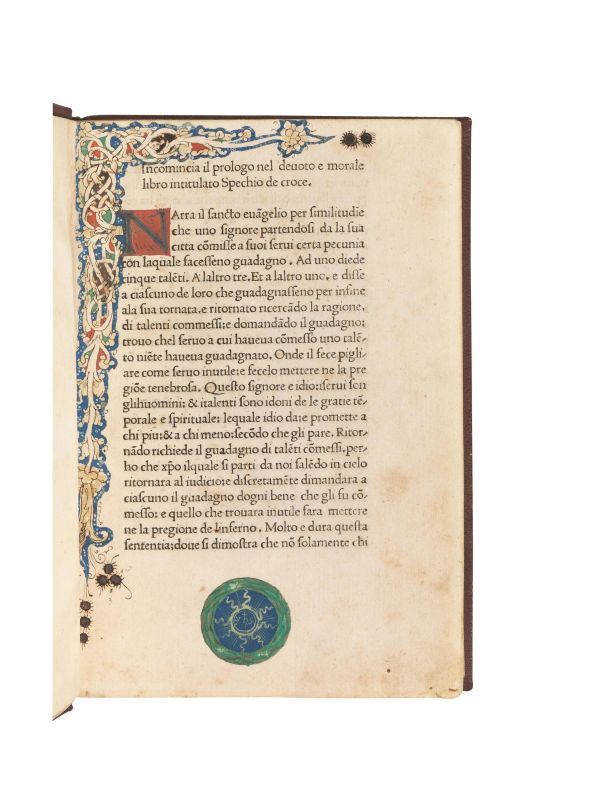 Incomincia il prologo nel deuoto e morale
libro intitulato Spechio de croce.
NArra il sancto euãgelio per similitudĩe
che uno signore partendosi da la sua
citta cõmisse a suoi serui certa pecunia
con laquale facesseno guadagno. Ad uno diede
cinque talẽti. A laltro tre. Et a laltro uno. e disse
a ciascuno de loro che guadagnasseno per infine
ala sua tornata. e ritornato ricercãdo la ragione.
di talenti commessi: e domandãdo il guadagno:
trouo chel seruo a cui haueua cõmesso uno talẽ-
to niẽte haueua guadagnato. Onde il fece pigli-
are come seruo inutile: e fecelo mettere ne la pre
giõe tenebrosa. Questo signore e idio: iserui son
glihuomini: & italenti sono idoni de le gratie tẽ-
porale e spirituale: lequale idio da: e promette a
chi piu: & a chi meno: secõdo che gli pare. Ritor-
nãdo richiede il guadagno di talẽti cõmessi. per-
ho che xp̃o ilquale si parti da noi salẽdo in cielo
ritornara al iudicio: e discretamẽte dimandara a
ciascuno il guadagno dogni bene che gli fu cõ-
messo: e quello che trouara inutile fara mettere
ne la pregione de linferno. Molto e dura questa
sententia: doue si dimostra che nõ solamente chi